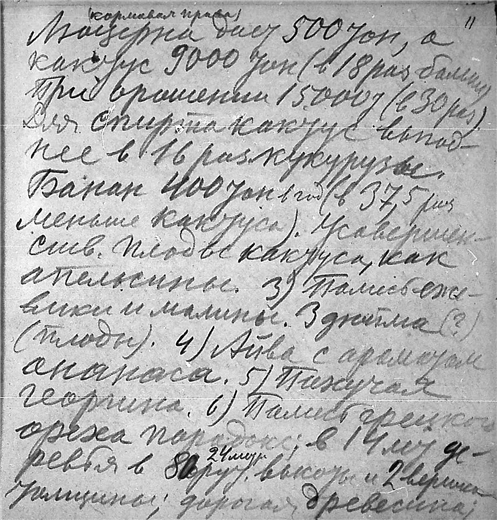 (кормовая трава)
11
Люцерна дает 500 тон, а
кактус 9000 тон (в 18 раз более)
При орошении 15000 т (в 30 раз)
Для спирта кактус выгод-
нее в 16 раз кукурузы.
Банан 400 тон в год (в 37,5 раз
меньше кактуса). Усовершен-
ств. плоды кактуса, как
апельсины. 3) Помесь еже-
вики и малины. 3 дюйма (?)
(плоды). 4) Айва с ароматом
ананаса. 5) Пахучая
георгина. 6) Помесь грецкого
ореха парадокс; в 14 лет де-
24 метр
ревья в 80 фут. высоты и 2
толщины; дорогая древесина;